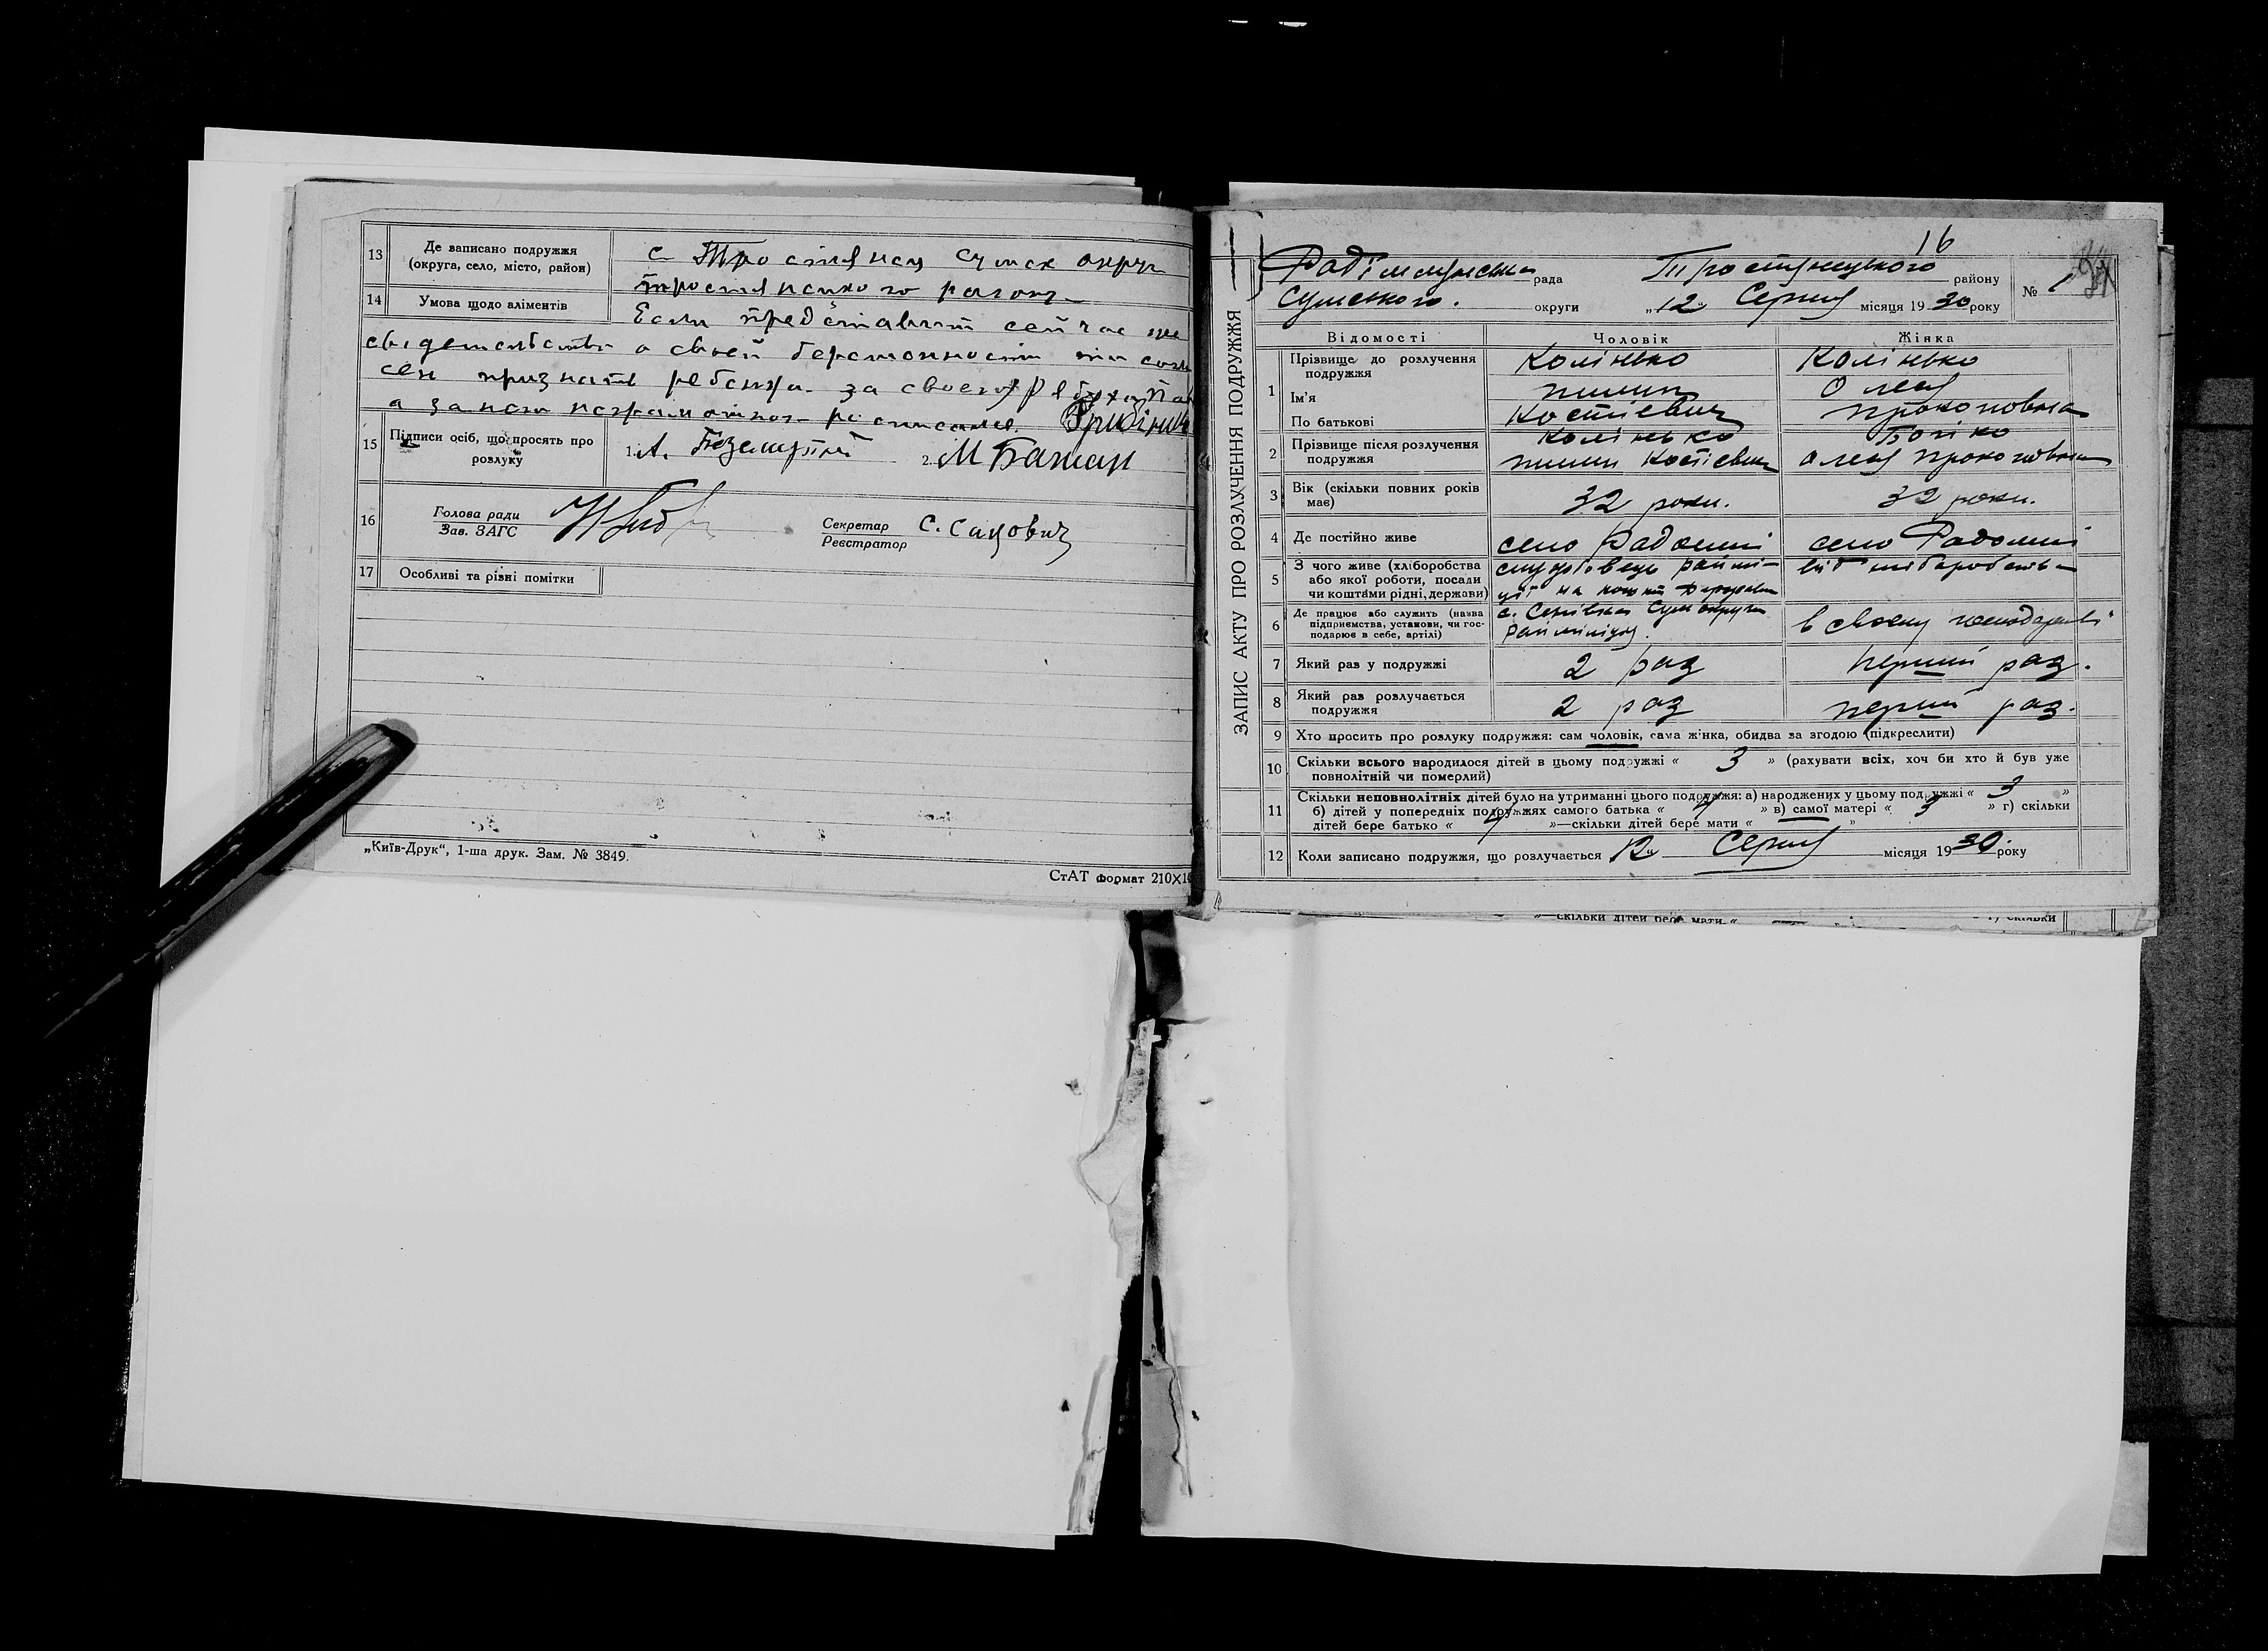 13 Де записано подружжя
(округа, село, місто, район)
с. Тростянец Сумск округ
тростянецкого району
14 Умова щодо аліментів
Если представит сейчас же
о своей беременности то
признать ребенка за своего
а за него неграмотного росписался.
15 Підписи осіб, що просять про
розлуку
1. А.
2. М Бажан
16 Голова ради
Зав. ЗАГС
Секретар
Реєстратор
С. Сацович
17 Особливі та різні помітки
„Київ-Друк“, 1-ша друк. Зам. № 3849.
СтАТ формат 210×1
16
ЗАПИС АКТУ ПРО РОЗЛУЧЕННЯ ПОДРУЖЖЯ
рада Тростянецького району
Сумського. округи „12“ Серпня місяця 1930 року
№ 1
Відомості Чоловік Жінка
1 Прізвище до розлучення
подружжя
Колінько Колінько
Ім'я
Пилип Олена
По батькові
Костієвич Прокоповна
2 Прізвище після розлучення
подружжя
Колінько Бойко
Пилип Костієвич Олена Прокоповна
3 Вік (скільки повних років
має)
32 роки. 32 роки.
4 Де постійно живе
село Радомлі село Радомлі
5 З чого живе (хліборобства
або якої роботи, посади
чи коштами рідні, держави)
службовець райміліції на кошти держави
від хліборобства
6 Де працює або служить (назва
підприємства, установи, чи гос-
подарює в себе, артілі)
Сум округи
райміліція.
в своєму господарстві
7 Який раз у подружжі
2 раз перший раз.
8 Який раз розлучається
подружжя
2 раз перший раз.
9 Хто просить про розлуку подружжя: сам чоловік, сама жінка, обидва за згодою (підкреслити)
10 Скільки всього народилося дітей в цьому подружжі « 3 » (рахувати всіх, хоч би хто й був уже
повнолітній чи померлий)
11 Скільки неповнолітніх дітей було на утриманні цього подружжя: а) народжених у цьому подружжі « 3 »
б) дітей у попередніх подружжях самого батька « » в) самої матері « 3 » г) скільки
дітей бере батько « »—скільки дітей бере мати « »
12 Коли записано подружжя, що розлучається „12“ Серпня місяця 1930 року
»—скільки дітей бере мати «